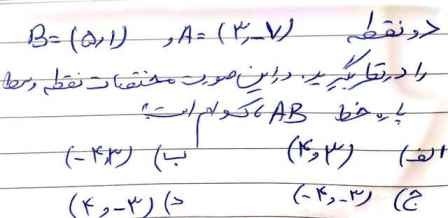 دو نقطه A = (۳, -۷) و B = (۵, ۱)
را در نظر بگیرید. در این صورت مختصات نقطه وسط
پاره خط AB کدام است؟
الف) (۴, ۳) ب) (-۴, ۳)
ج) (-۴, -۳) د) (۴, -۳)